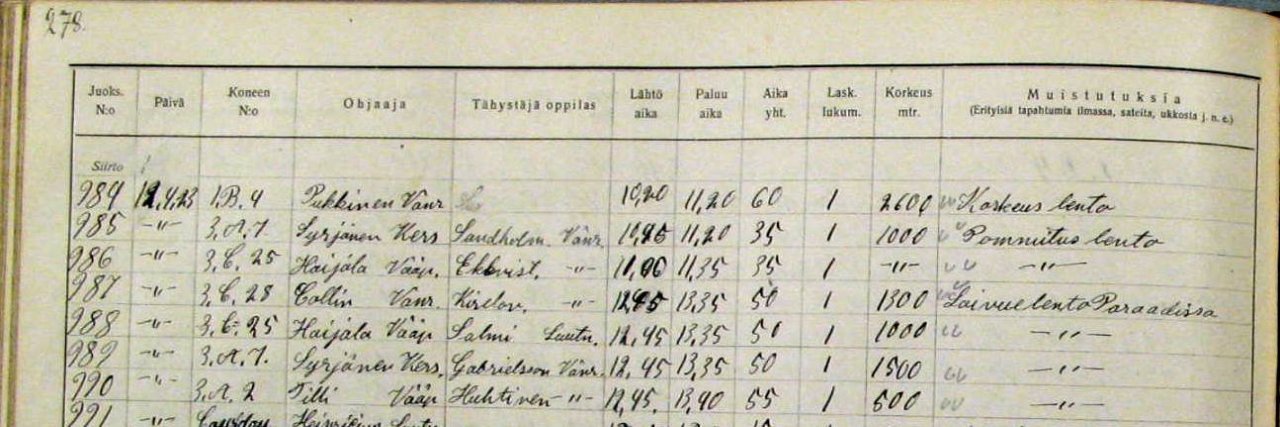 278.
Juoks. N:o Päivä Koneen N:o Ohjaaja Tähystäjä oppilas Lähtö aika Paluu aika Aika yht. Lask. lukum. Korkeus mtr. Muistutuksia (Erityisiä tapahtumia ilmassa, sateita, ukkosta j. n. e.)
Siirto
984 12.4.23 1.B.4 Pukkinen Vänr 10,20 11,20 60 1 2600 Korkeus lento
985 -"- 3.A.7 Syrjänen Kers Sandholm Vänr. 10,45 11,20 35 1 1000 Pommitus lento
986 -"- 3.C.25 Haijala Vääp. Ekkvist, -"- 11,00 11,35 35 1 -"- -"-
987 -"- 3.C.28 Collin Vänr. Kirelov, -"- 12,45 13,35 50 1 1300 Laivue lento Paraadissa
988 -"- 3.C.25 Haijala Vääp Salmi Luutn. 12,45 13,35 50 1 1000 -"-
989 -"- 3.A.7. Syrjänen Kers. Gabrielsson Vänr. 12,45 13,35 50 1 1500 -"-
990 -"- 3.A.2 Tilli Vääp Huhtinen -"- 12,45. 13,40 55 1 500 -"-
991 -"- Caudron